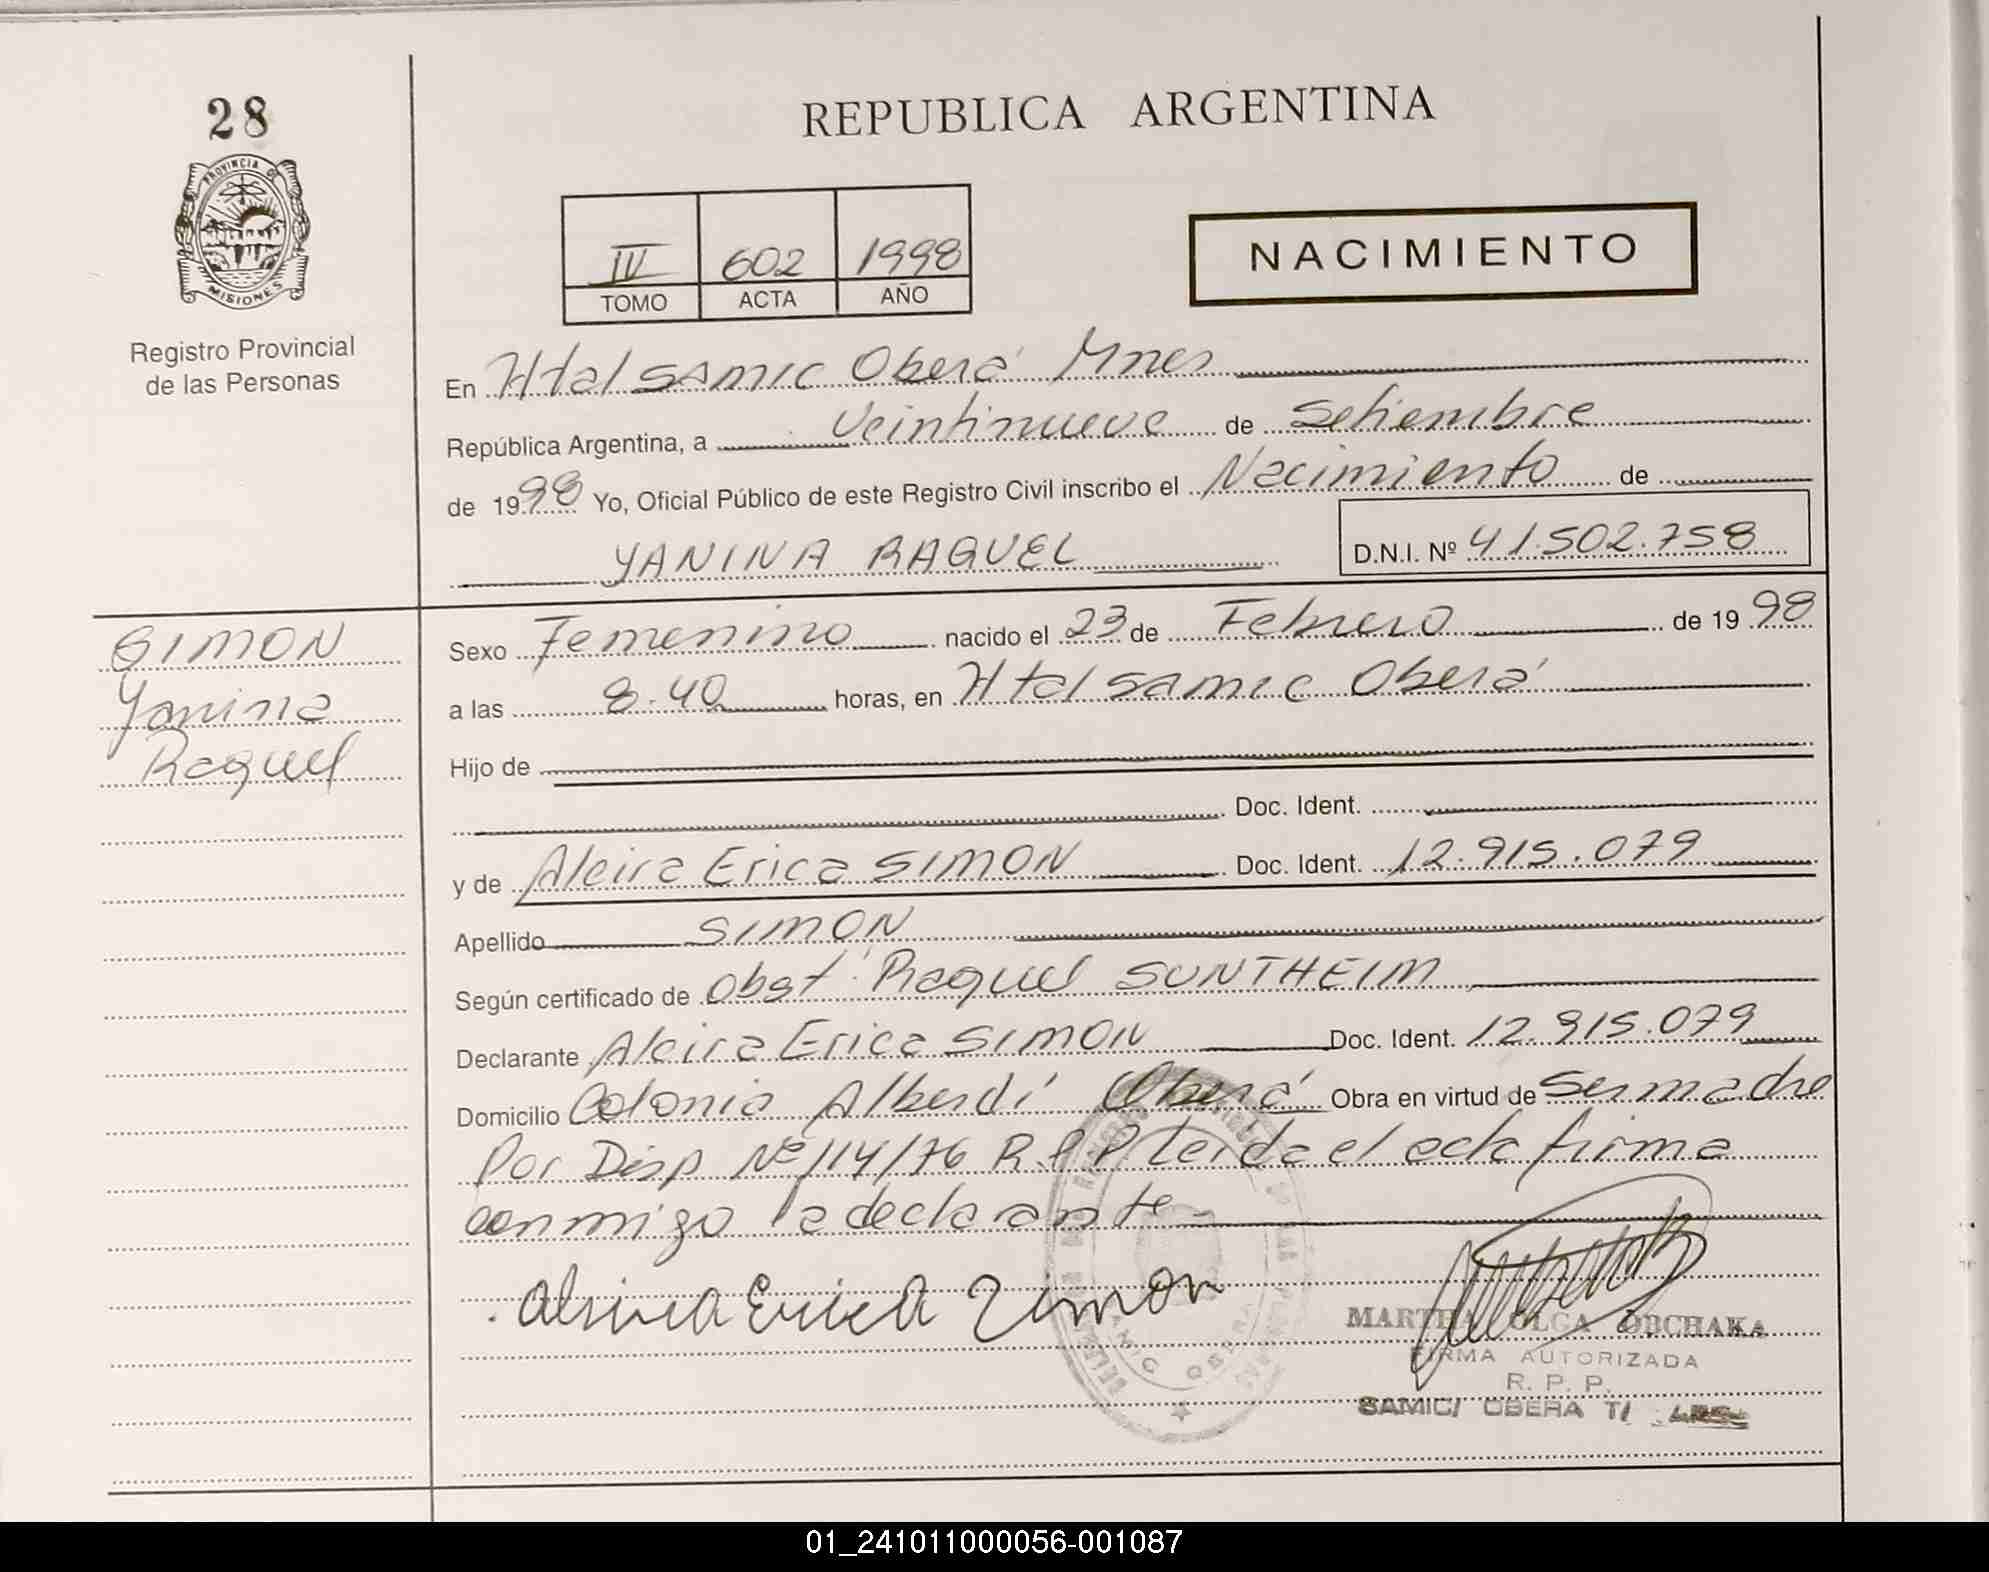 28
PROVINCIA DE
MISIONES
Registro Provincial
de las Personas
REPUBLICA ARGENTINA
IV 602 1998
TOMO ACTA AÑO
NACIMIENTO
En Htal SAMIC Oberá Mnes
República Argentina, a Veintinueve de Setiembre
de 1998 Yo, Oficial Público de este Registro Civil inscribo el Nacimiento de
YANINA RAQUEL D.N.I. Nº 41.502.758
SIMON
Yanina
Raquel
Sexo Femenino nacido el 23 de Febrero de 1998
a las 8.40 horas, en Htal SAMIC Oberá
Hijo de
Doc. Ident.
y de Alcira Erica SIMON Doc. Ident. 12.915.079
Apellido SIMON
Según certificado de Obst. Raquel SUNTHEIM
Declarante Alcira Erica SIMON Doc. Ident. 12.915.079
Domicilio Colonia Alberdi Oberá Obra en virtud de Ser madre
Por Disp Nº 114/76 R.P.P Leida el acta firma
conmigo la declarante
Alsira Erica Simon
MARTHA OLGA OBCHAKA
FIRMA AUTORIZADA
R. P. P.
SAMIC/ OBERA
01_241011000056-001087